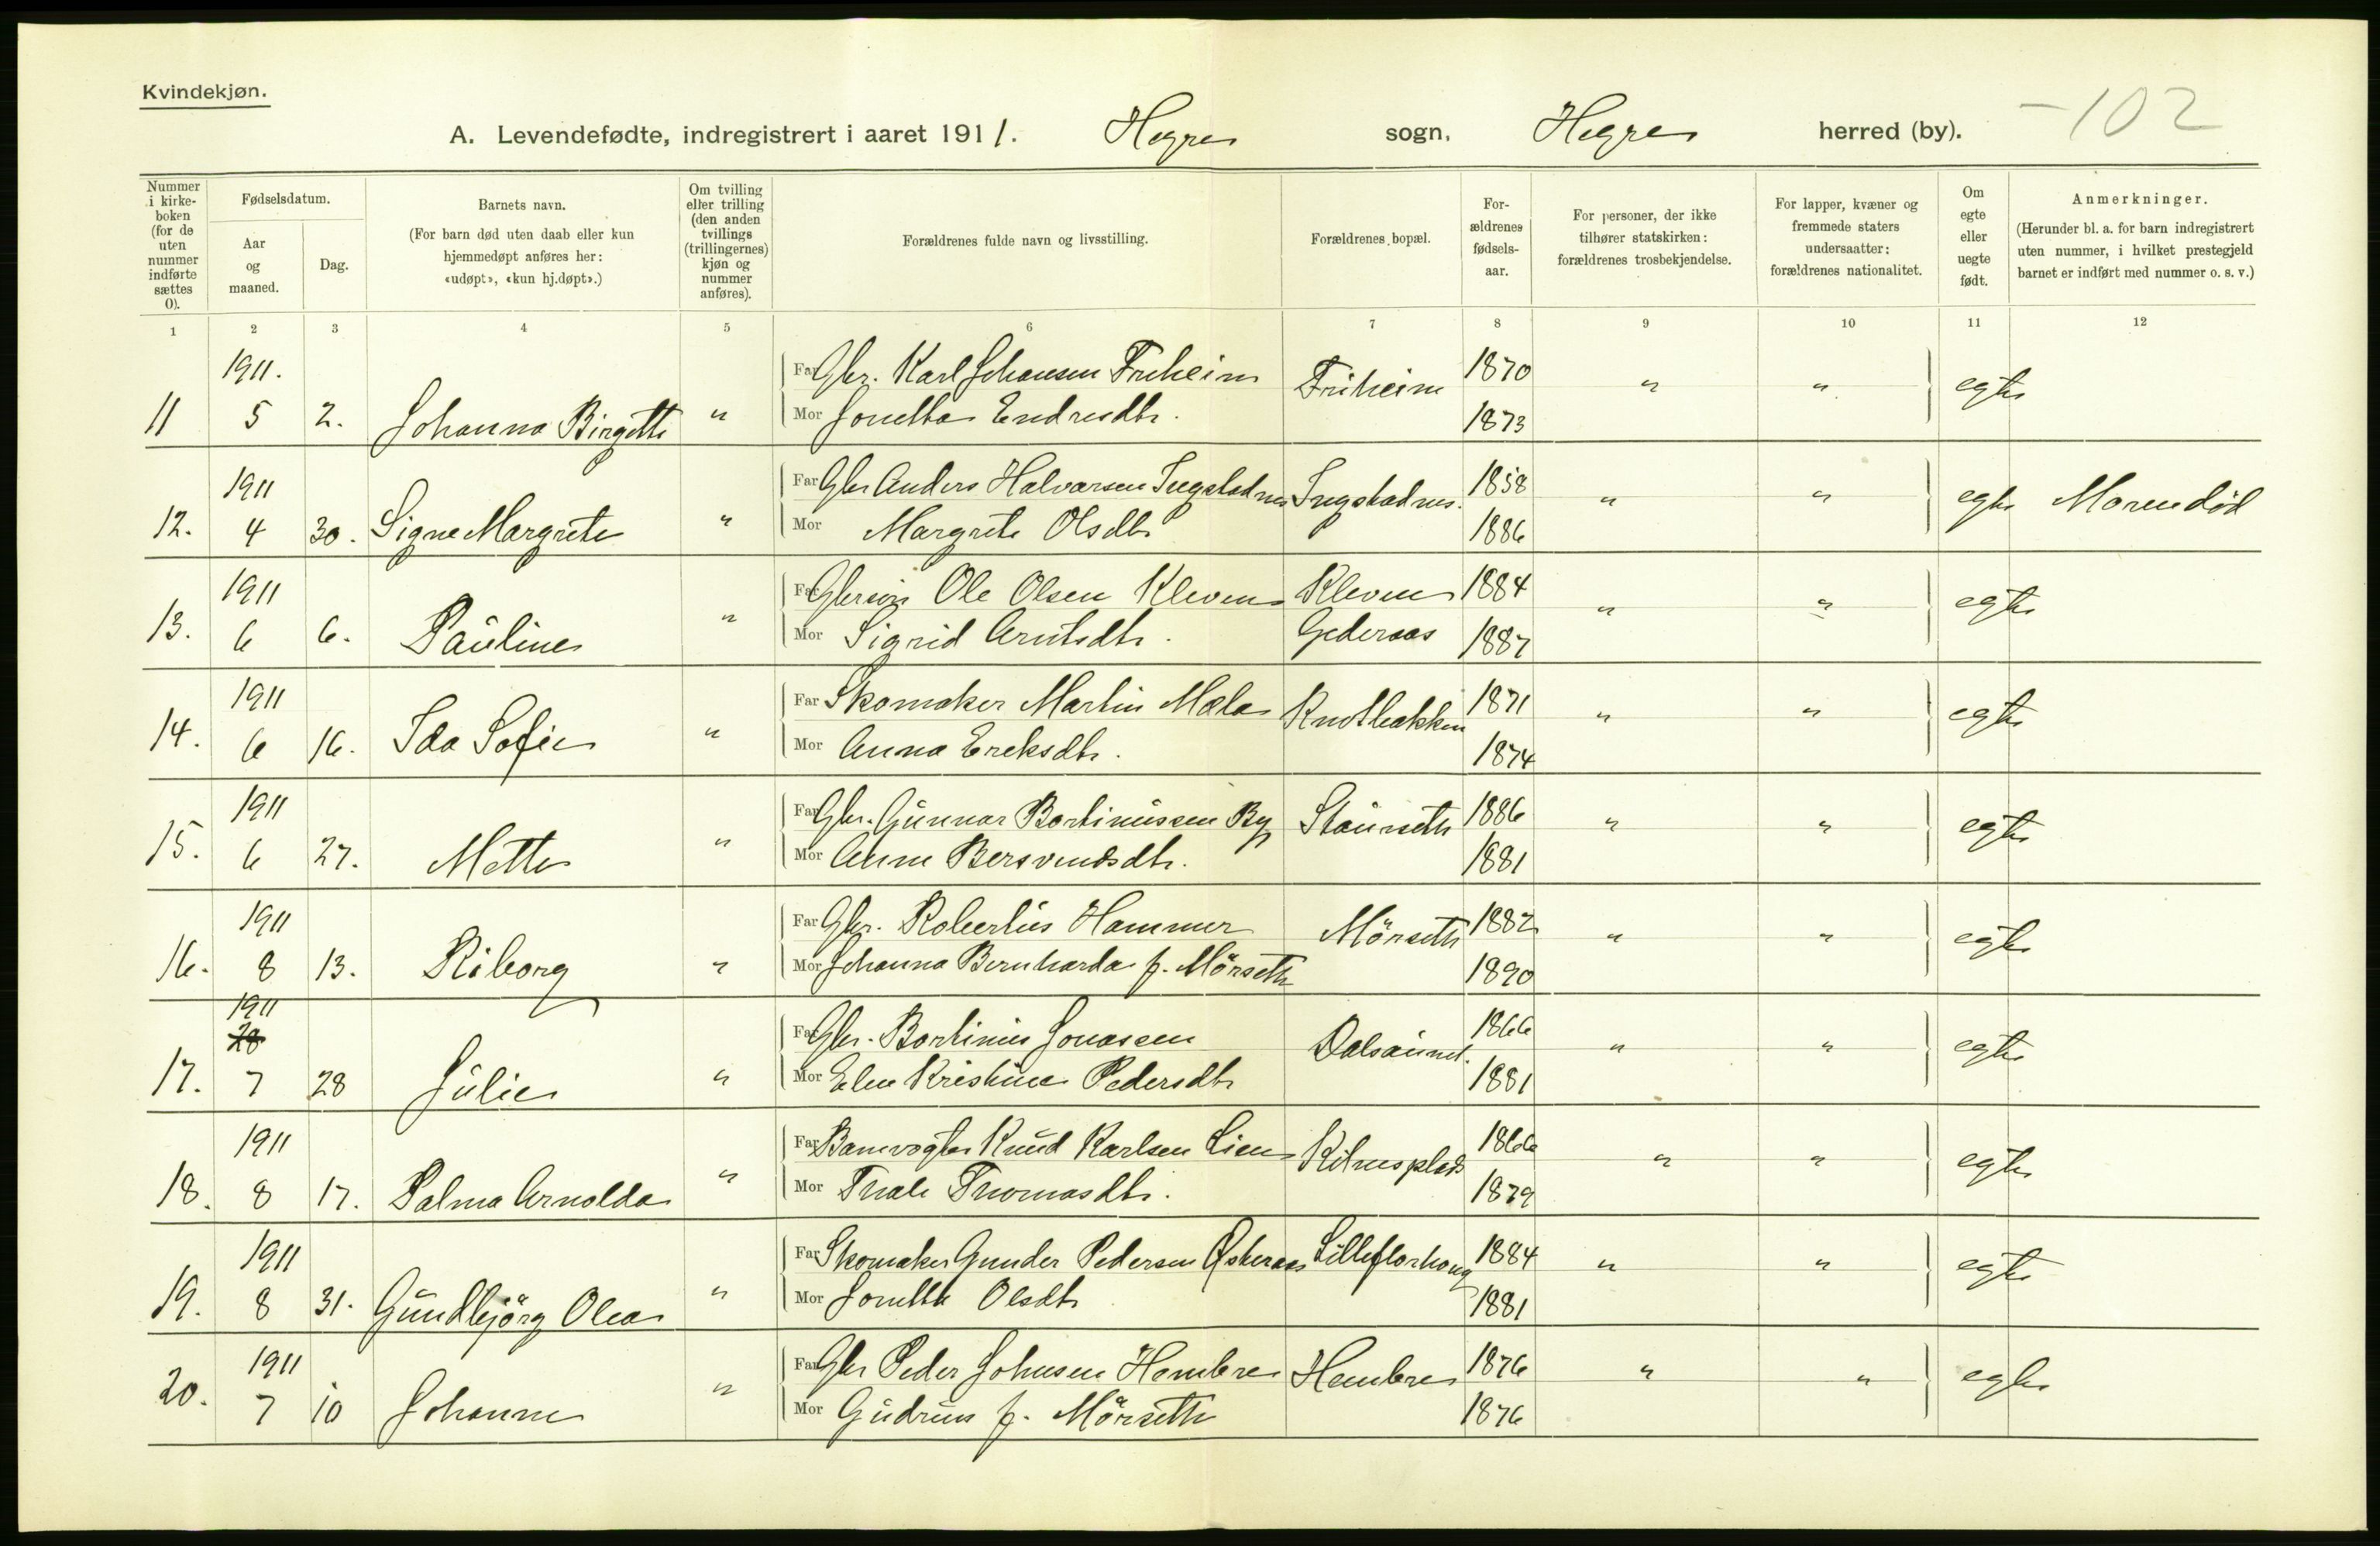 Kvindekjøn.
A. Levendefødte, indregistrert i aaret 1911. Hegre sogn, Hegre herred (by). -102
Nummer i kirke-boken (for de uten nummer indførte sættes 0).
Fødselsdatum.
Aar og maaned.
Dag.
Barnets navn.
(For barn død uten daab eller kun hjemmedøpt anføres her: «udøpt», «kun hj.døpt».)
Om tvilling eller trilling (den anden tvillings (trillingernes) kjøn og nummer anføres).
Forældrenes fulde navn og livsstilling.
Forældrenes bopæl.
For-ældrenes fødsels-aar.
For personer, der ikke tilhører statskirken: forældrenes trosbekjendelse.
For lapper, kvæner og fremmede staters undersaatter: forældrenes nationalitet.
Om egte eller uegte født.
Anmerkninger.
(Herunder bl. a. for barn indregistrert uten nummer, i hvilket prestegjeld barnet er indført med nummer o. s. v.)
1 2 3 4 5 6 7 8 9 10 11 12
1911. Far Gbr. Karl Johansen Friheim Friheim 1870 " " egte
11 5 2. Johanna Birgitte " Mor Jonetta Endresdtr. 1873
1911 Far Gbr Anders Halvorsen Ingstadnes Ingstadnes. 1858 " " egte Moren död
12. 4 30. Signe Margrete " Mor Margrete Olsdtr 1886
1911 Far Gbrsön Ole Olsen Kleven Kleven 1884 " " egte
13. 6 6. Pauline " Mor Sigrid Arntsdtr. Gederaas 1887
1911 Far Skomaker Martin Mæla Knotbakken 1871 " " egte
14. 6 16. Ida Sofie " Mor Anna Ereksdtr. 1874
1911 Far Gbr. Gunnar Bortinussen By Stäurseth 1886 " " egte
15. 6 27. Mette " Mor Anne Bersvendsdtr. 1881
1911 Far Gbr. Robertus Hammer Mörseth 1882 " " egte
16. 8 13. Riborg " Mor Johanna Bernharda f. Mörseth 1890
1911 Far Gbr. Bortinus Jonassen Dalsaunet. 1866 " " egte
28
17. 7 28 Julie " Mor Elen Kristine Pedersdtr 1881
1911 Far Banevogter Knud Karlsen Lien Kilnesplads 1866 " " egte
18. 8 17. Palma Arnolda " Mor Thale Thomasdtr. 1879
1911 Far Skomaker Gunder Pedersen Østeraas Lilleflorhoug 1884 " " egte
19. 8 31. Gundbjörg Olea " Mor Jonetta Olsdtr 1881
1911 Far Gbr Peder Johnsen Hembre Hembre 1876 " " egte
20. 7 10 Johanne " Mor Gudrun f. Mörseth 1876